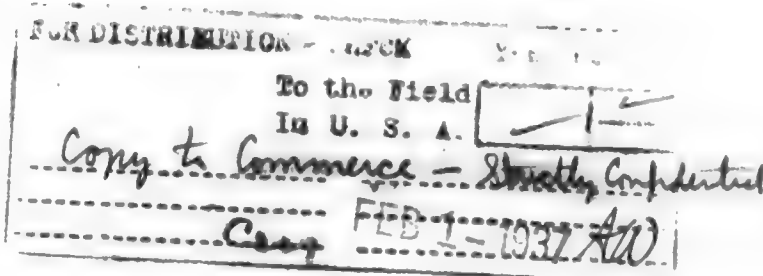 FOR DISTRIBUTION - CHECK
To the Field
In U. S. A.
Copy to Commerce - Strictly Confidential
FEB 1 - 1937 AW